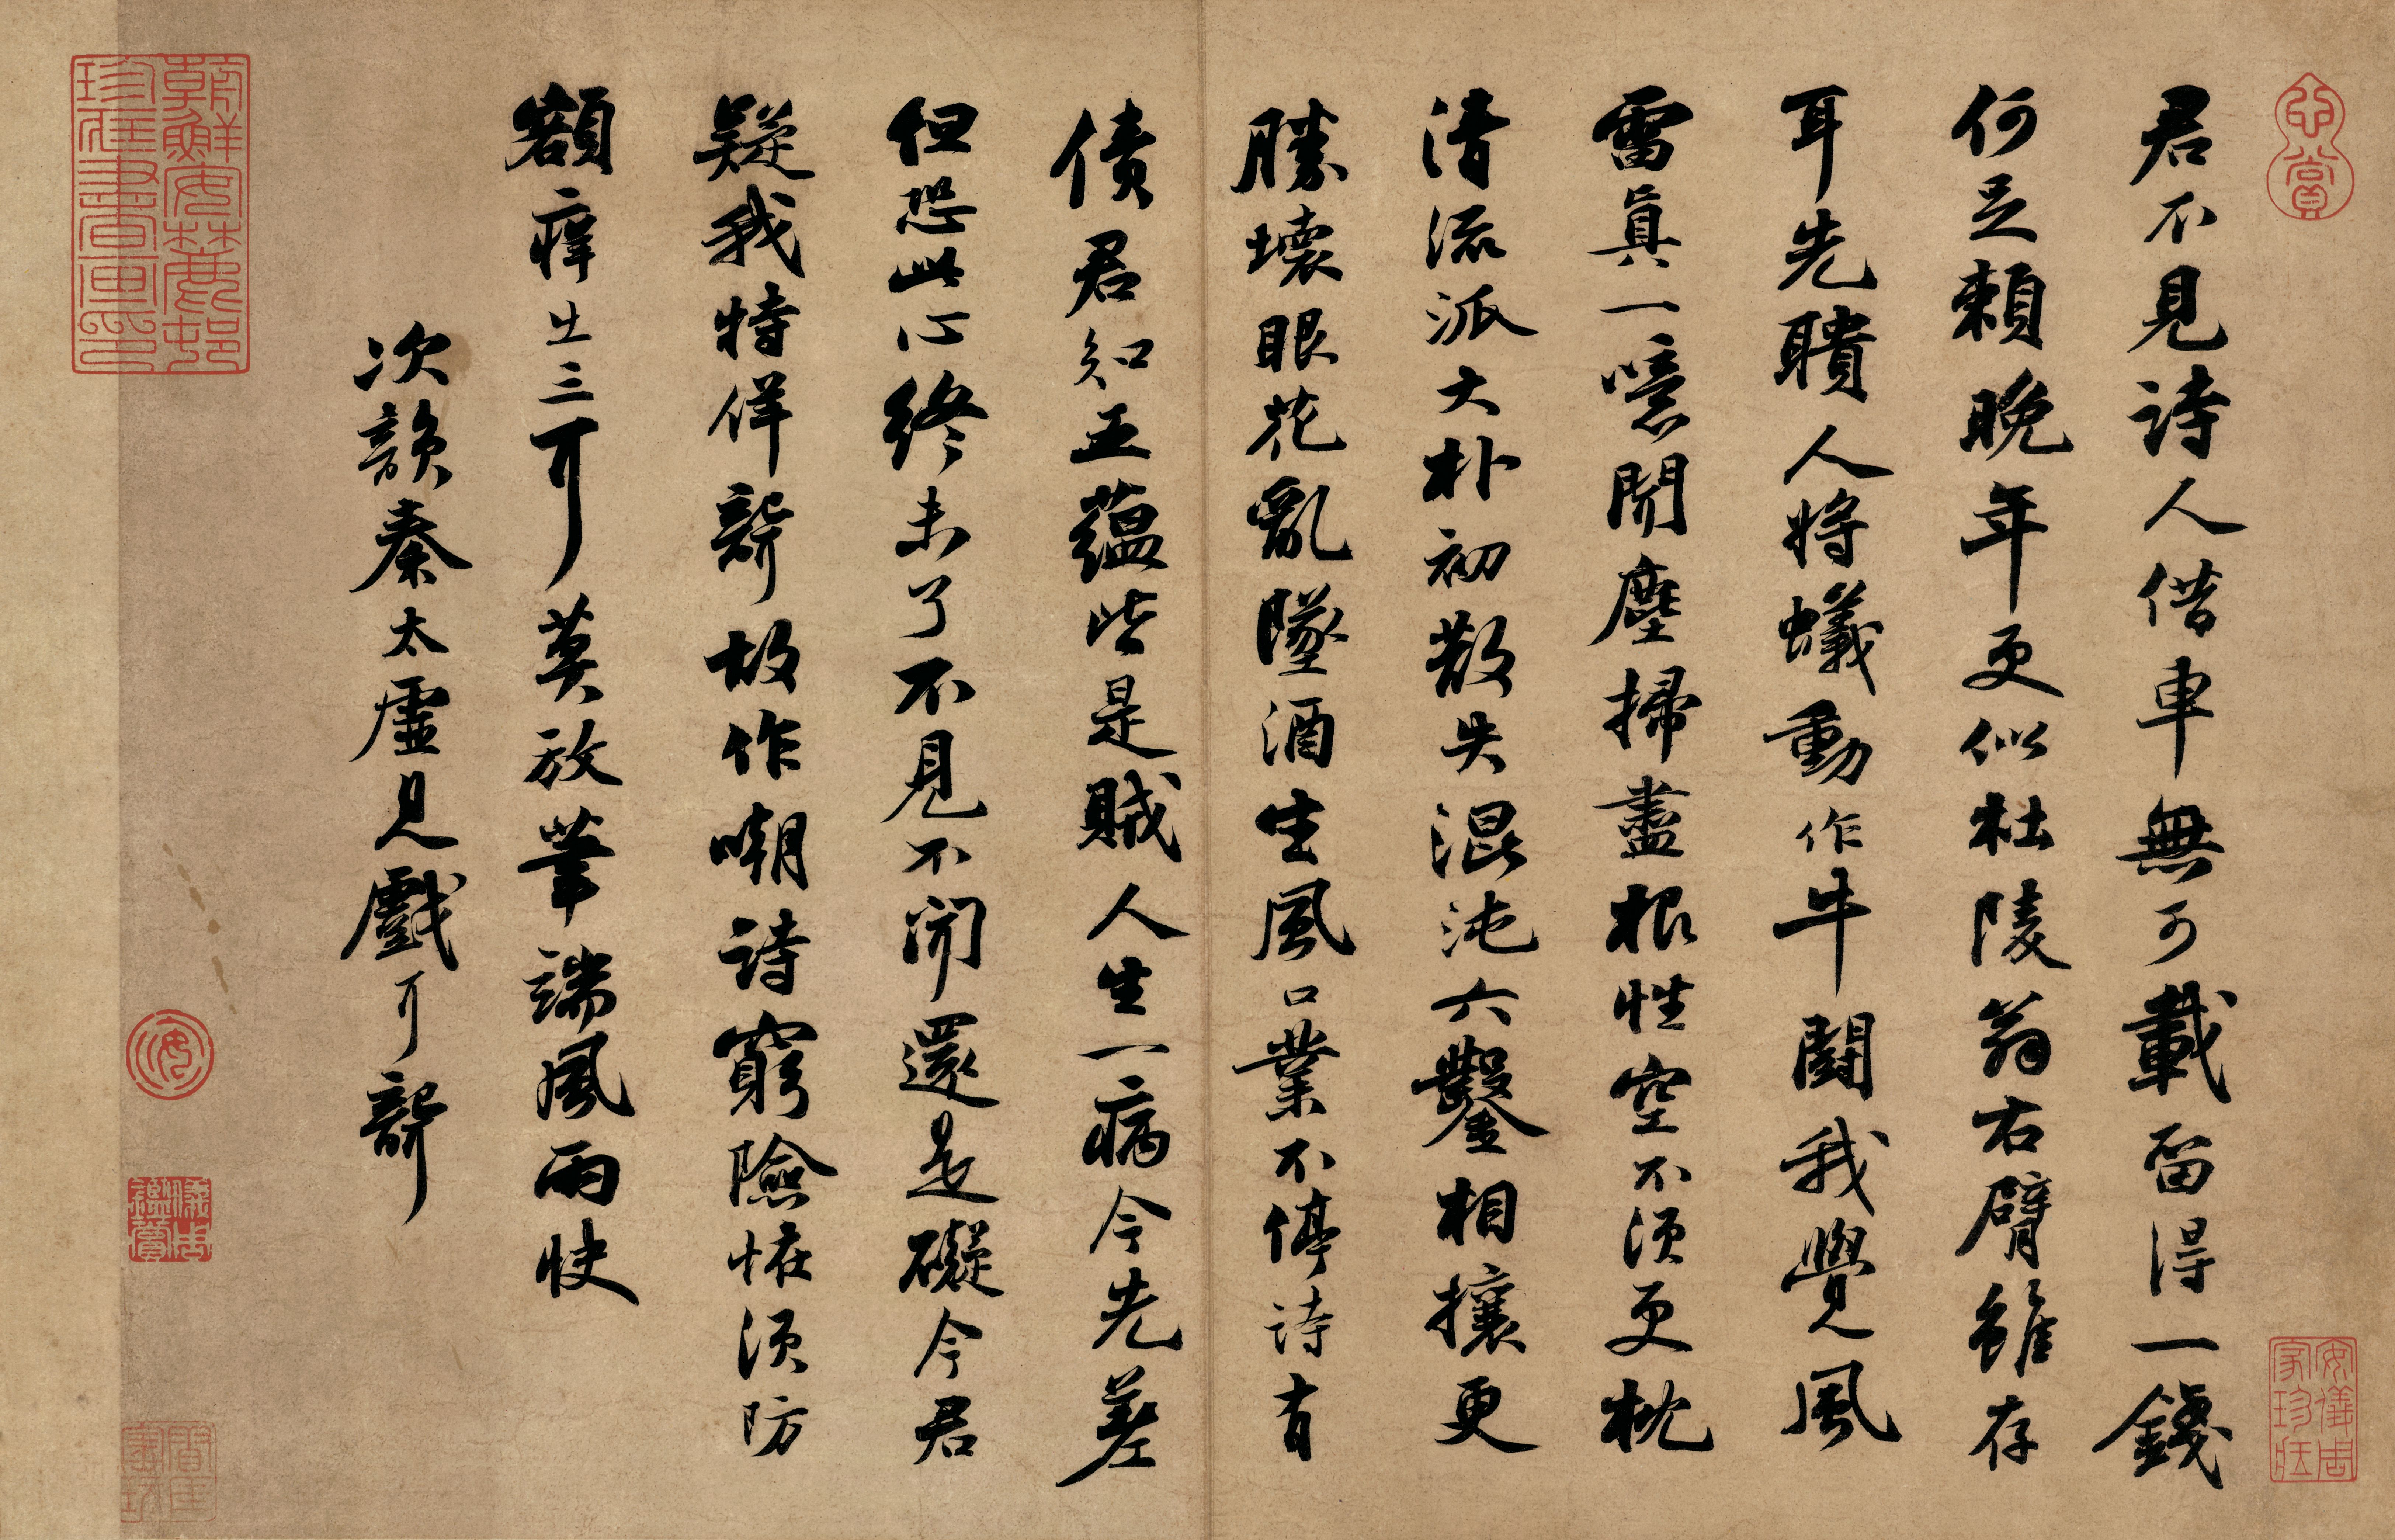 心賞
安儀周家珍藏
君不見詩人借車無可載畱得一錢
何足賴晚年更似杜陵翁右臂雖存
耳先聵人將蟻動作牛鬪我覺風
雷眞一噫聞塵掃盡根性空不須更枕
清流派大朴初散失混沌六鑿相攘更
勝壞眼花亂墜酒生風口業不停詩有
債君知五蘊皆是賊人生一病今先差
但恐此心終未了不見不聞還是礙今君
疑我特佯聾故作嘲詩窮險怪須防
額癢出三耳莫放筆端風雨快
次韻秦太虛見戲耳聾
朝鮮安麓邨珍藏書畫印
安
儀周鑑賞